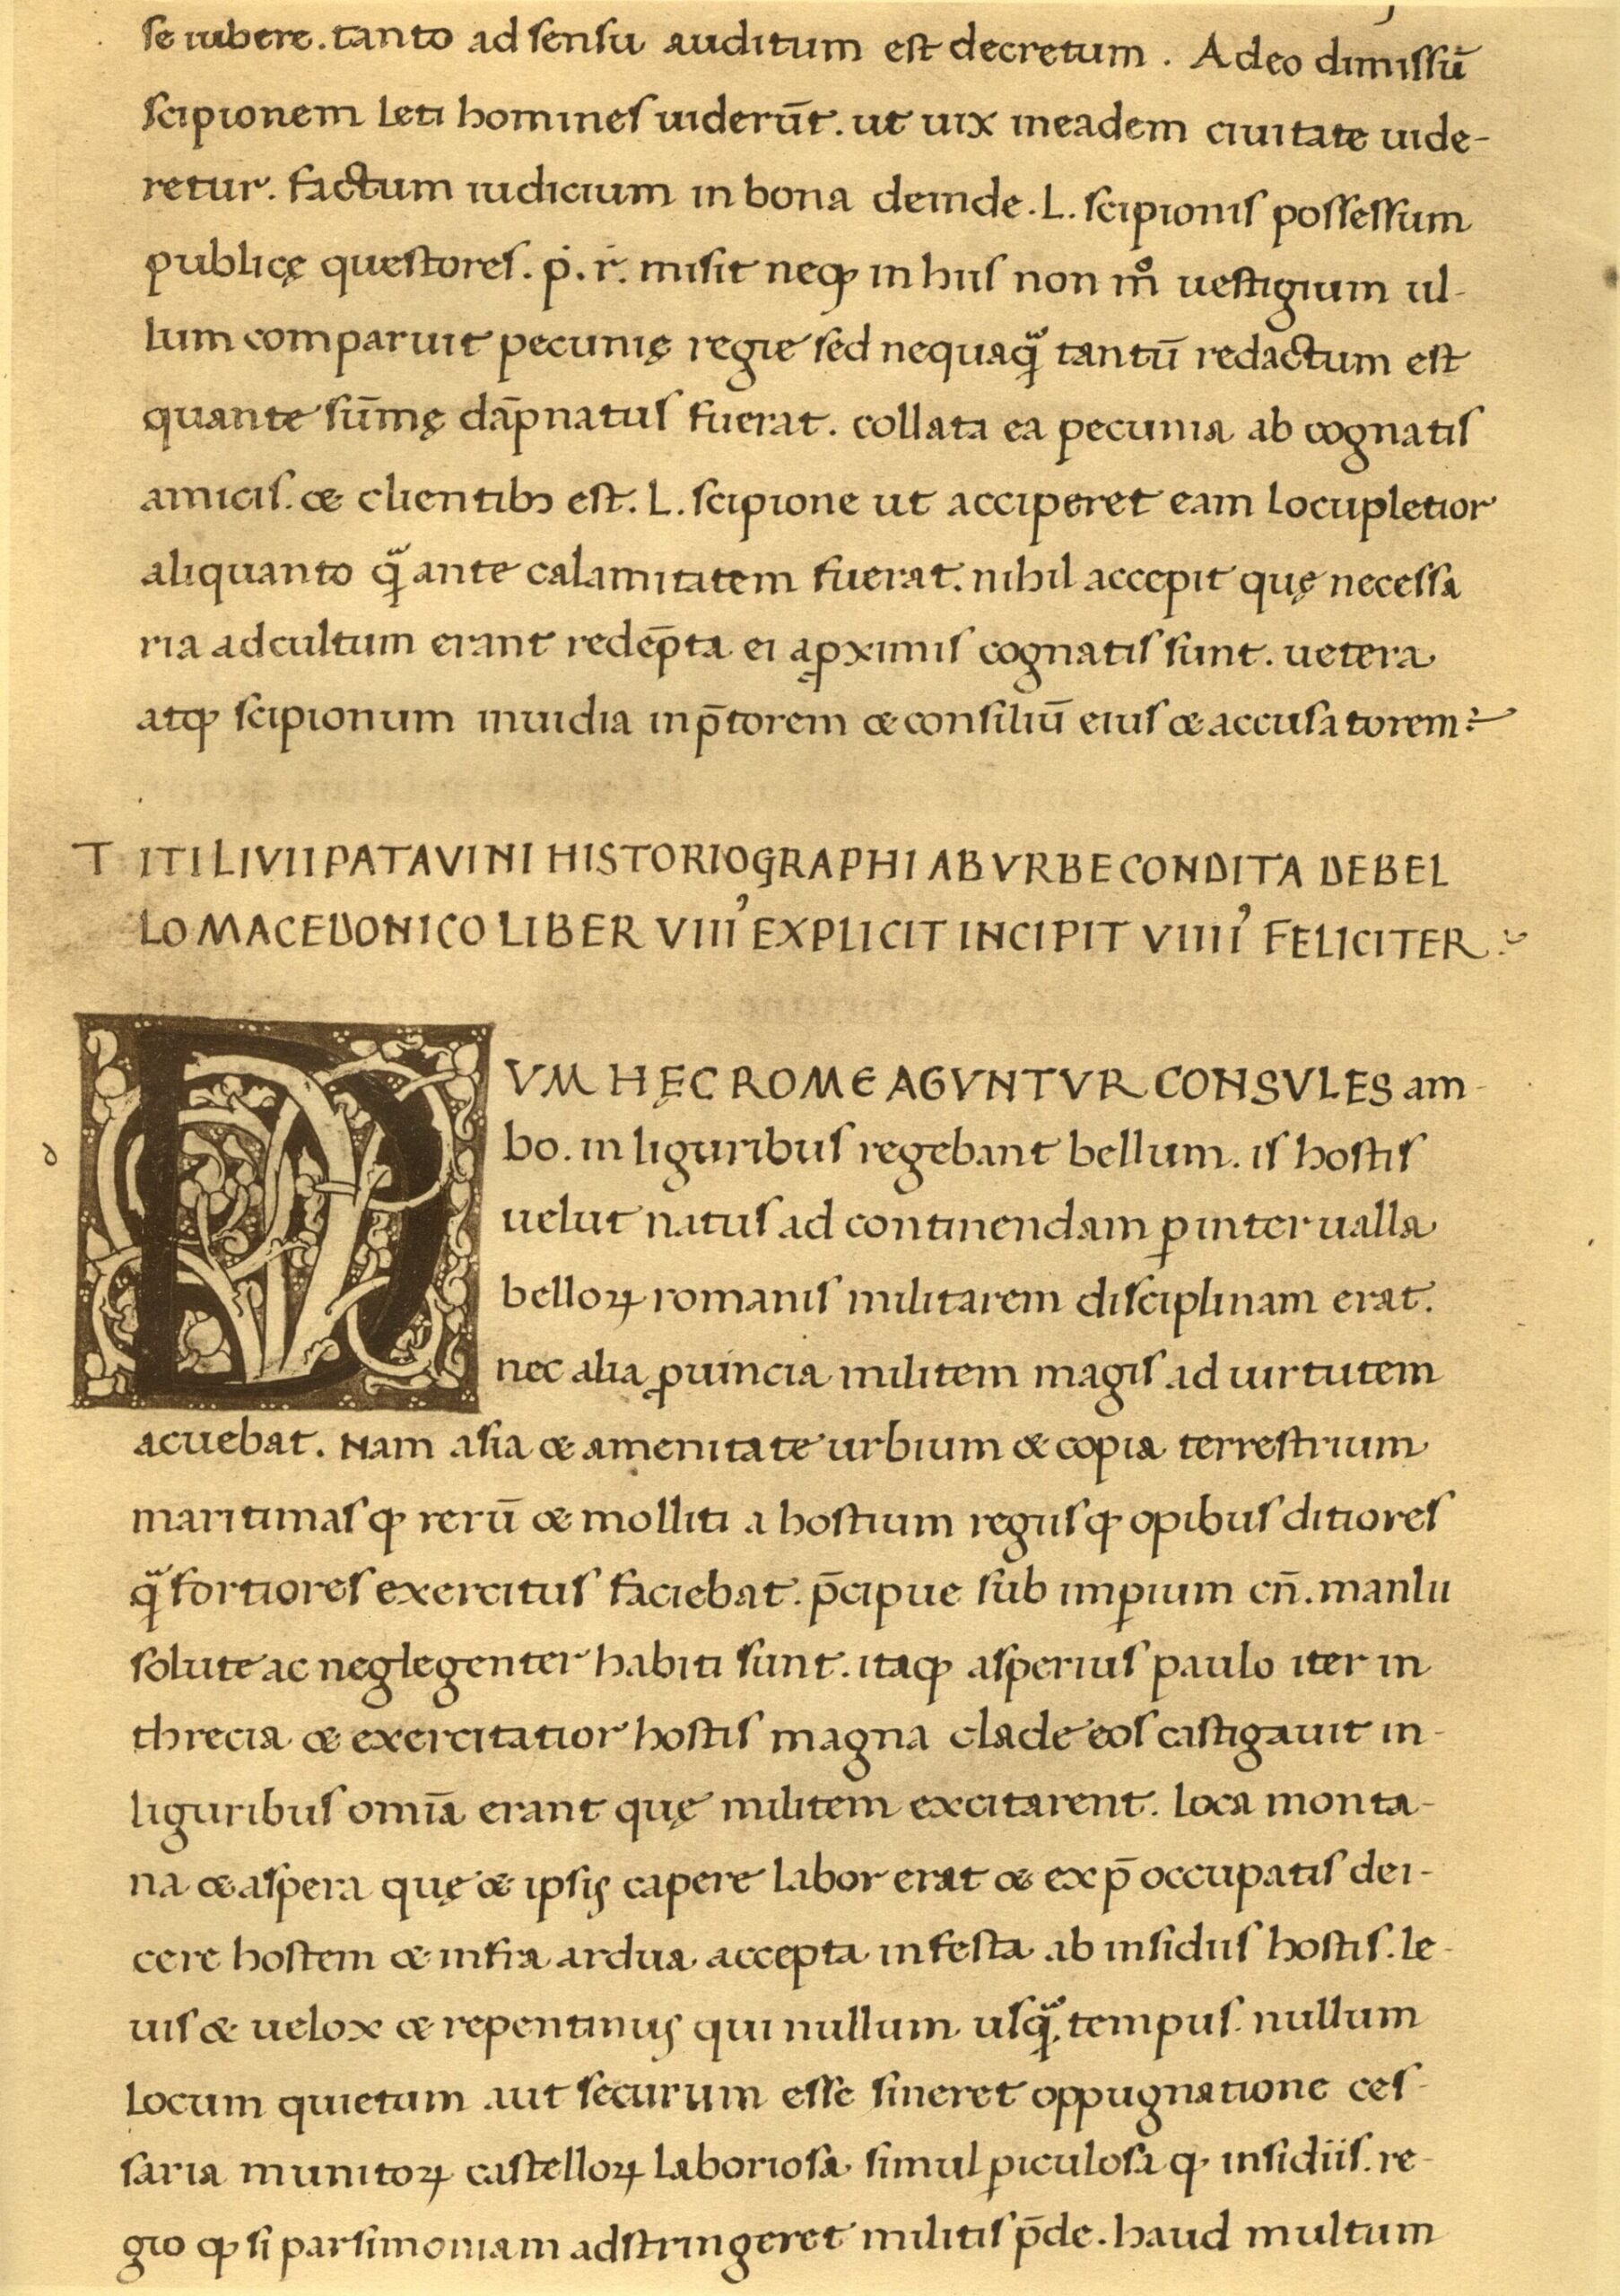 se iubere. tanto ad sensu auditum est decretum. Adeo dimissū
scipionem leti homines uiderūt. ut uix ineadem ciuitate uide-
retur. factum iudicium in bona deinde. L. scipionis possessum
publicę questores. ṗ. ṙ. misit neqꝫ in hiis non mº uestigium ul-
lum comparuit pecunię regie sed nequaqᷓ tantū redactum est
quante sūmę dāpnatus fuerat. collata ea pecunia ab cognatis
amicis. & clientibꝫ est. L. scipione ut acciperet eam locupletior
aliquanto qᷓ ante calamitatem fuerat. nihil accepit quę necessa
ria adcultum erant redēpta ei aꝓximis cognatis sunt. uetera
atqꝫ scipionum inuidia inp̄torem & consiliū eius & accusatorem
TITI LIVII PATAVINI HISTORIOGRAPHI AB VRBE CONDITA DE BEL
LO MACEDONICO LIBER VIII' EXPLICIT INCIPIT VIIII' FELICITER
d
DVM HĘC ROME AGVNTVR CONSVLES am-
bo. in liguribus regebant bellum. is hostis
uelut natus ad continendam ꝑinterualla
belloꝝ romanis militarem disciplinam erat.
nec alia ꝓuincia militem magis ad uirtutem
acuebat. Nam asia & amenitate urbium & copia terrestrium
maritimas qꝫ rerū & molliti a hostium regiisqꝫ opibus ditiores
qᷓ fortiores exercitus faciebat. p̄cipue sub imꝑium cn̄. manlii
solute ac neglegenter habiti sunt. itaqꝫ asperius paulo iter in
threcia & exercitatior hostis magna clade eos castigauit in-
liguribus omīa erant quę militem excitarent. loca monta-
na & aspera quę & ipsis capere labor erat & ex p̄occupatis dei-
cere hostem & infra ardua accepta infesta ab insidiis hostis. le-
uis & uelox & repentinus qui nullum usqᷓ tempus. nullum
locum quietum aut securum esse sineret oppugnatione ces-
saria munitoꝝ castelloꝝ laboriosa simul ꝑiculosa qꝫ insidiis. re-
gio qꝫ si parsimoniam adstringeret militis p̄de. haud multum